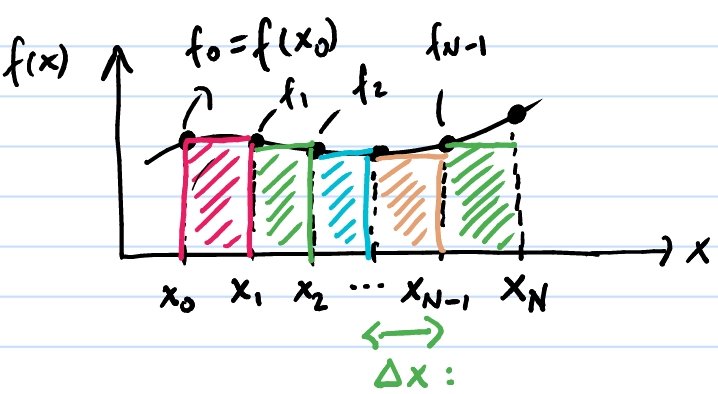 f(x)
f₀ = f(x₀)
f₁
f₂
f_{N-1}
x₀ x₁ x₂ ... x_{N-1} x_N
x
Δx: